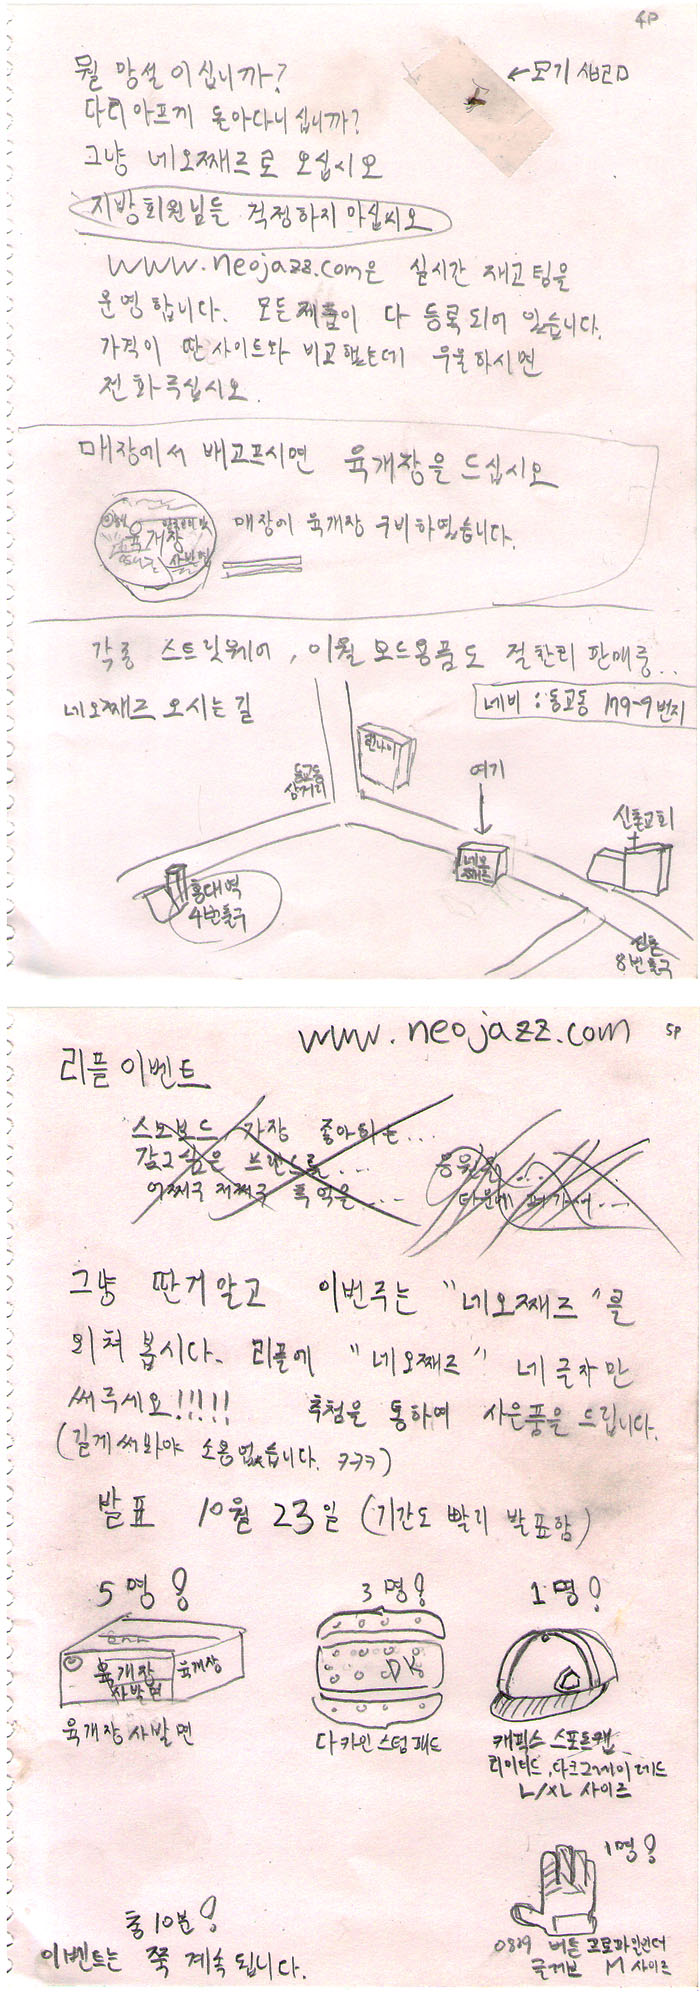 4P
뭘 망설이십니까?
←모기 새끼ㅁ
다리아프게 돌아다니십니까?
그냥 네오째즈로 오십시오
지방회원님들 걱정하지 마십시오
www.neojazz.com은 실시간 재고팀을
운영합니다. 모든 제품이 다 등록되어 있습니다.
가격이 딴 사이트와 비교했는데 우울하시면
전화주십시오.
매장에서 배고프시면 육개장을 드십시오
육개장
사발면
매장에 육개장 구비하였습니다.
각종 스트릿웨어, 이월 보드용품도 절찬리 판매중..
네오째즈 오시는길
네비 : 동교동 179-9번지
린나이
동교동
삼거리
여기
신촌교회
네오
째즈
홍대역
4번출구
신촌
8번출구
www.neojazz.com
5P
리플이벤트
스노보드 가장 좋아하는...
갖고싶은 브랜드를....
어쩌구 저쩌구 폭억을....
응원글...
다운에 퍼가서....
그냥 딴거말고 이번주는 "네오째즈"를
외쳐봅시다. 리플에 "네오째즈" 네글자만
써주세요!!!!! 추첨을 통하여 사은품을 드립니다.
(길게써봐야 소용없습니다. ㅋㅋㅋ)
발표 10월 23일 (기간도 빨리 발표함)
5명!
3명!
1명!
육개장
사발면
육개장
DK
육개장 사발면
다카인 스텀패드
캐픽스 스포트캡
리미티드, 다크그레이 레드
L/XL 사이즈
1명!
총10분!
0809 버튼 프로파인더
글러브 M 사이즈
이벤트는 쭉 계속 됩니다.